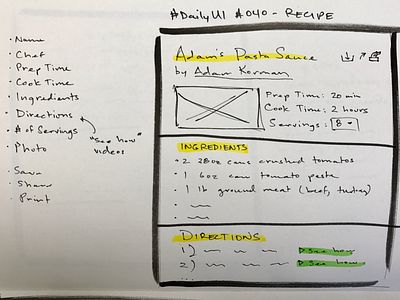 #DailyUI #040 - RECIPE
· Name
· Chef
· Prep Time
· Cook Time
· Ingredients
· Directions
· # of Servings
"See how" videos
· Photo
· Save
· Share
· Print
Adam's Pasta Sauce
by Adam Korman
Prep Time: 20 min
Cook Time: 2 hours
Servings: 8
INGREDIENTS
· 2 28oz cans crushed tomatos
· 1 6oz can tomato paste
· 1 lb ground meat (beef, turkey)
DIRECTIONS
1) See how
2) See how